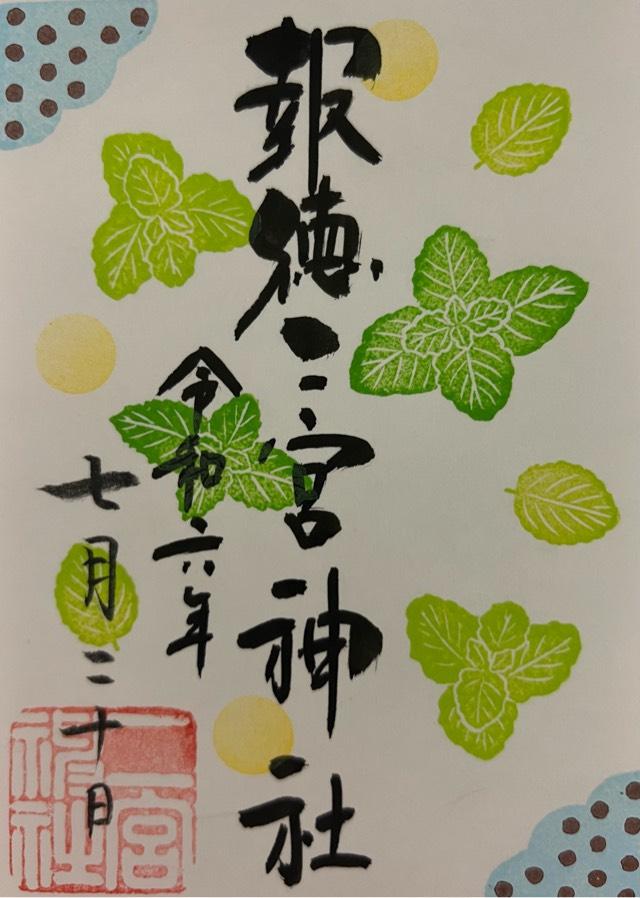 報徳二宮神社
令和六年
七月二十日
二宮
神社